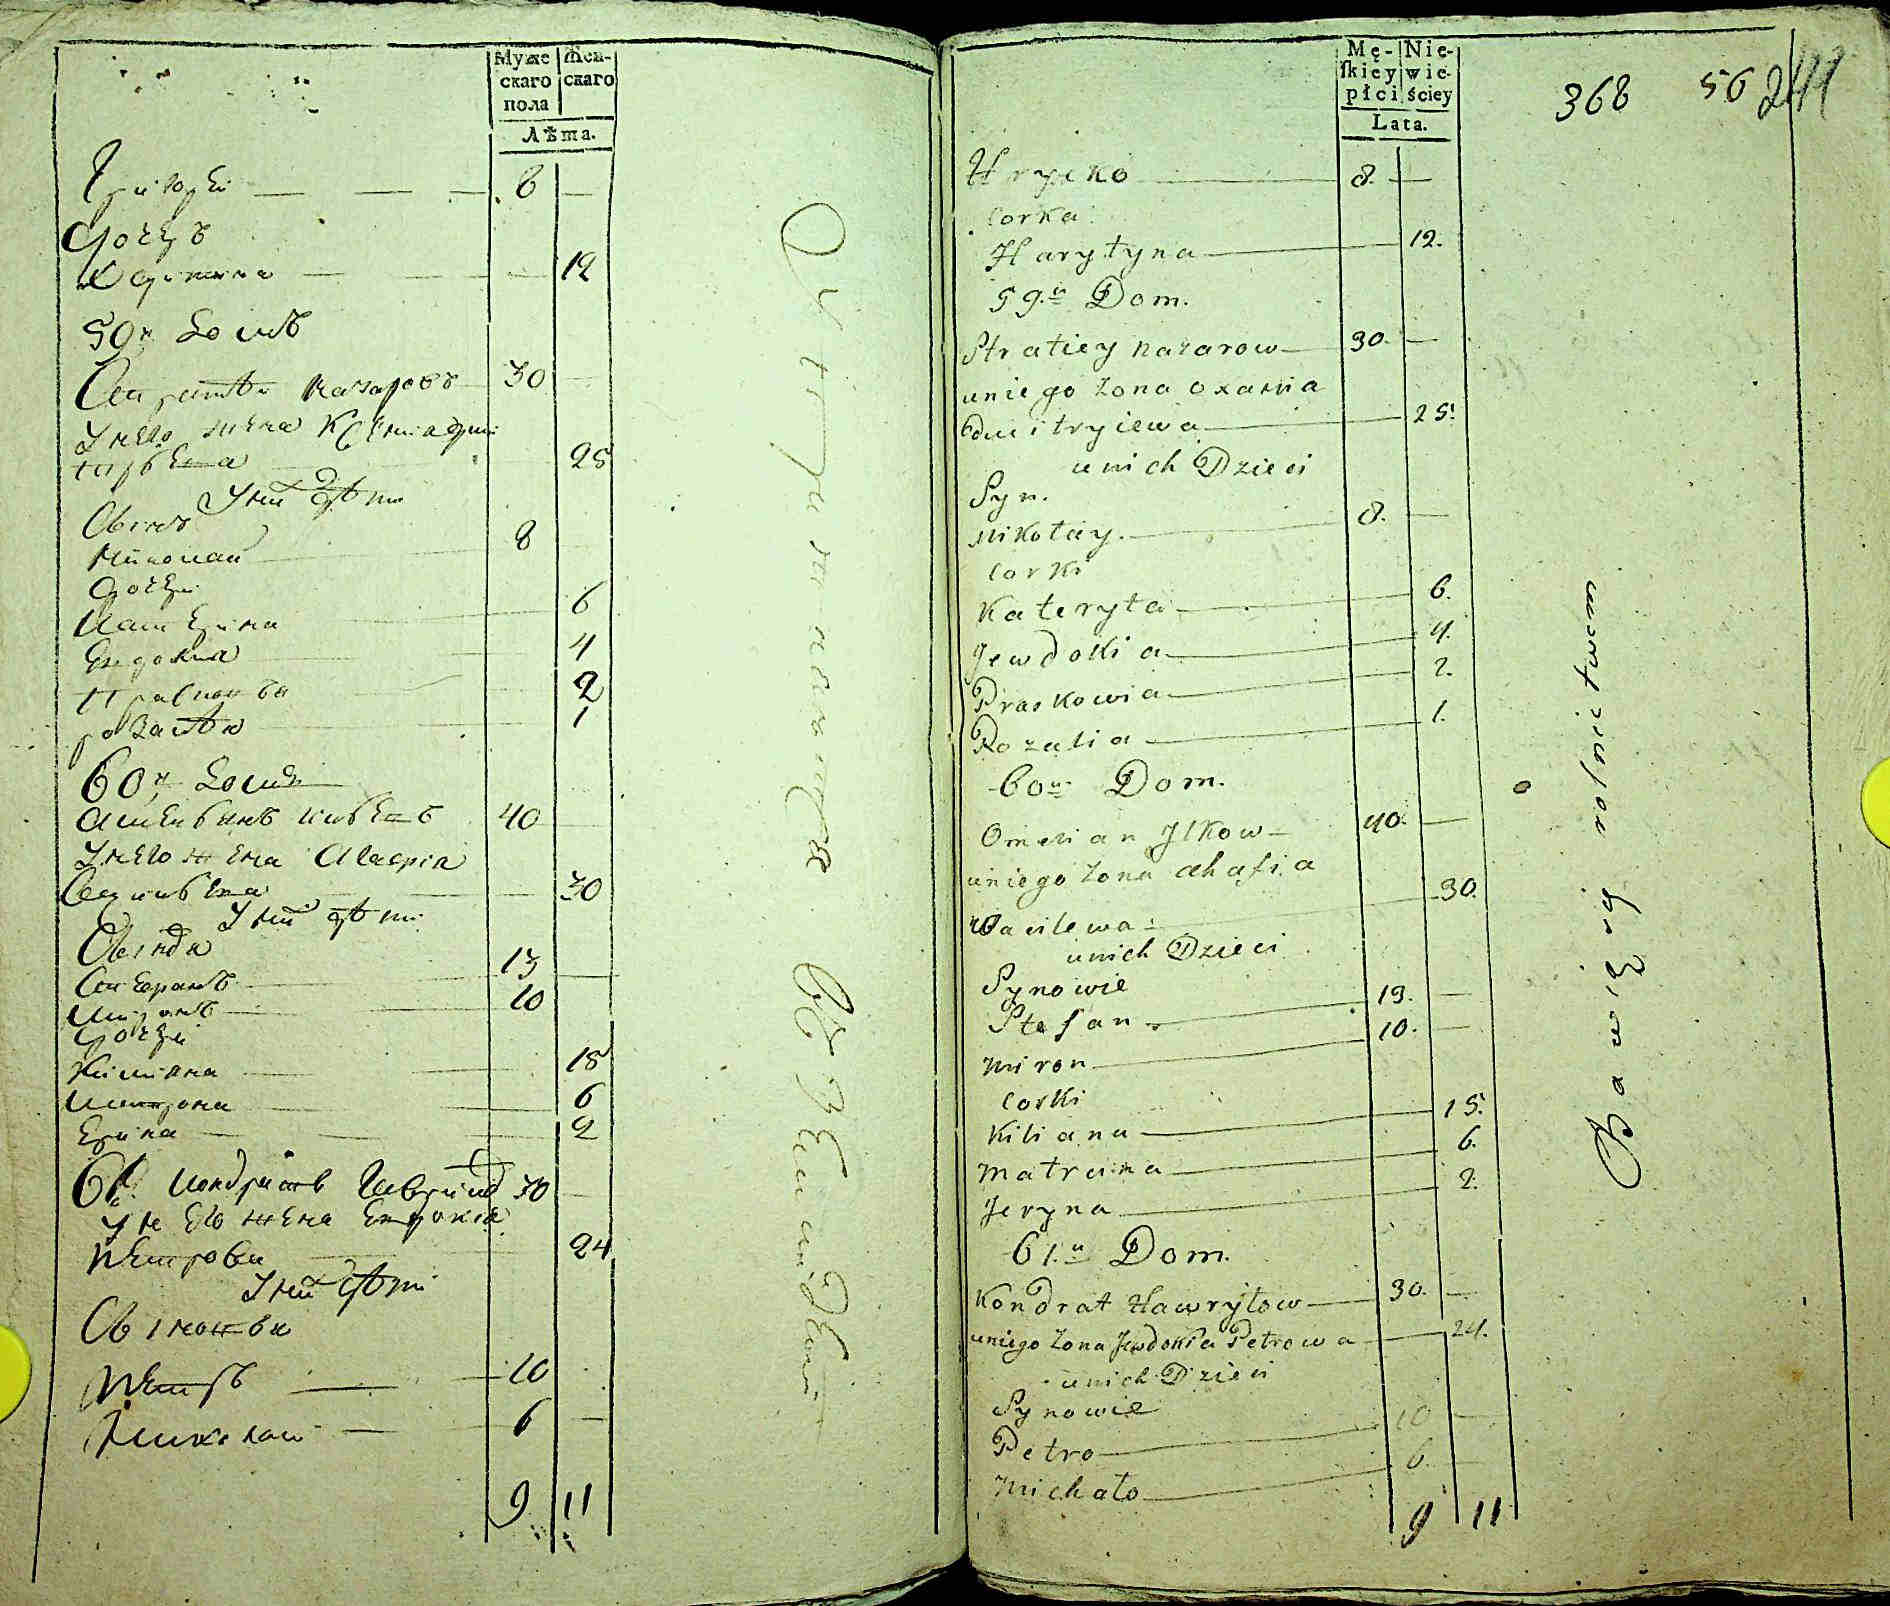 Муже
скаго
пола
Жен-
скаго
Лѣта.
Григорей 8
Дочерь
Харитина 12
59й Домъ
Стратѣй Назаровъ 30
У него жена Ксения Дми
триева 25
У них дѣти
Сынъ
Николай 8
Дочери
Катерина 6
Евдокия 4
Прасковья 2
Розалѣя 1
60й Домъ
Омельянъ 40
У него жена Агафия
Василева 30
У них дѣти
Сыновья
Степанъ 13
Миронъ 10
Дочери
Килияна 15
Матрона 6
Ерина 2
61й Кондратъ Гаврилов 30
У него жена Евдокия
Петрова 24
У них дѣти
Сыновья
Петръ 10
Михайло 6
9 11
Mę-
skiey
płci
Nie-
wie-
ściey
Lata.
368 56 241
Hrycko 8.
Corka
Harytyna 12.
59.u Dom.
Stratiey Nazarow 30.
uniego Zona Oxania
Dmitryiewa 25.
unich Dzieci
Syn.
Mikołay. 8.
Corki
Kateryta 6.
Jewdokia 4.
Praskowia 2.
Rozalia 1.
60u Dom.
Omelian Jlkow 40.
uniego Zona Ahafia
Wasilewa 30.
unich Dzieci
Synowie
Stefan 13.
Miron 10.
Corki
Kiliana 15.
Matruna 6.
Jeryna 2.
61.u Dom.
Kondrat Hawryłow 30.
uniego Zona Jewdokia Petrowa 24.
unich Dzieci
Synowie
Petro 10
Michało 6.
9 11
Bawią się rolnictwem